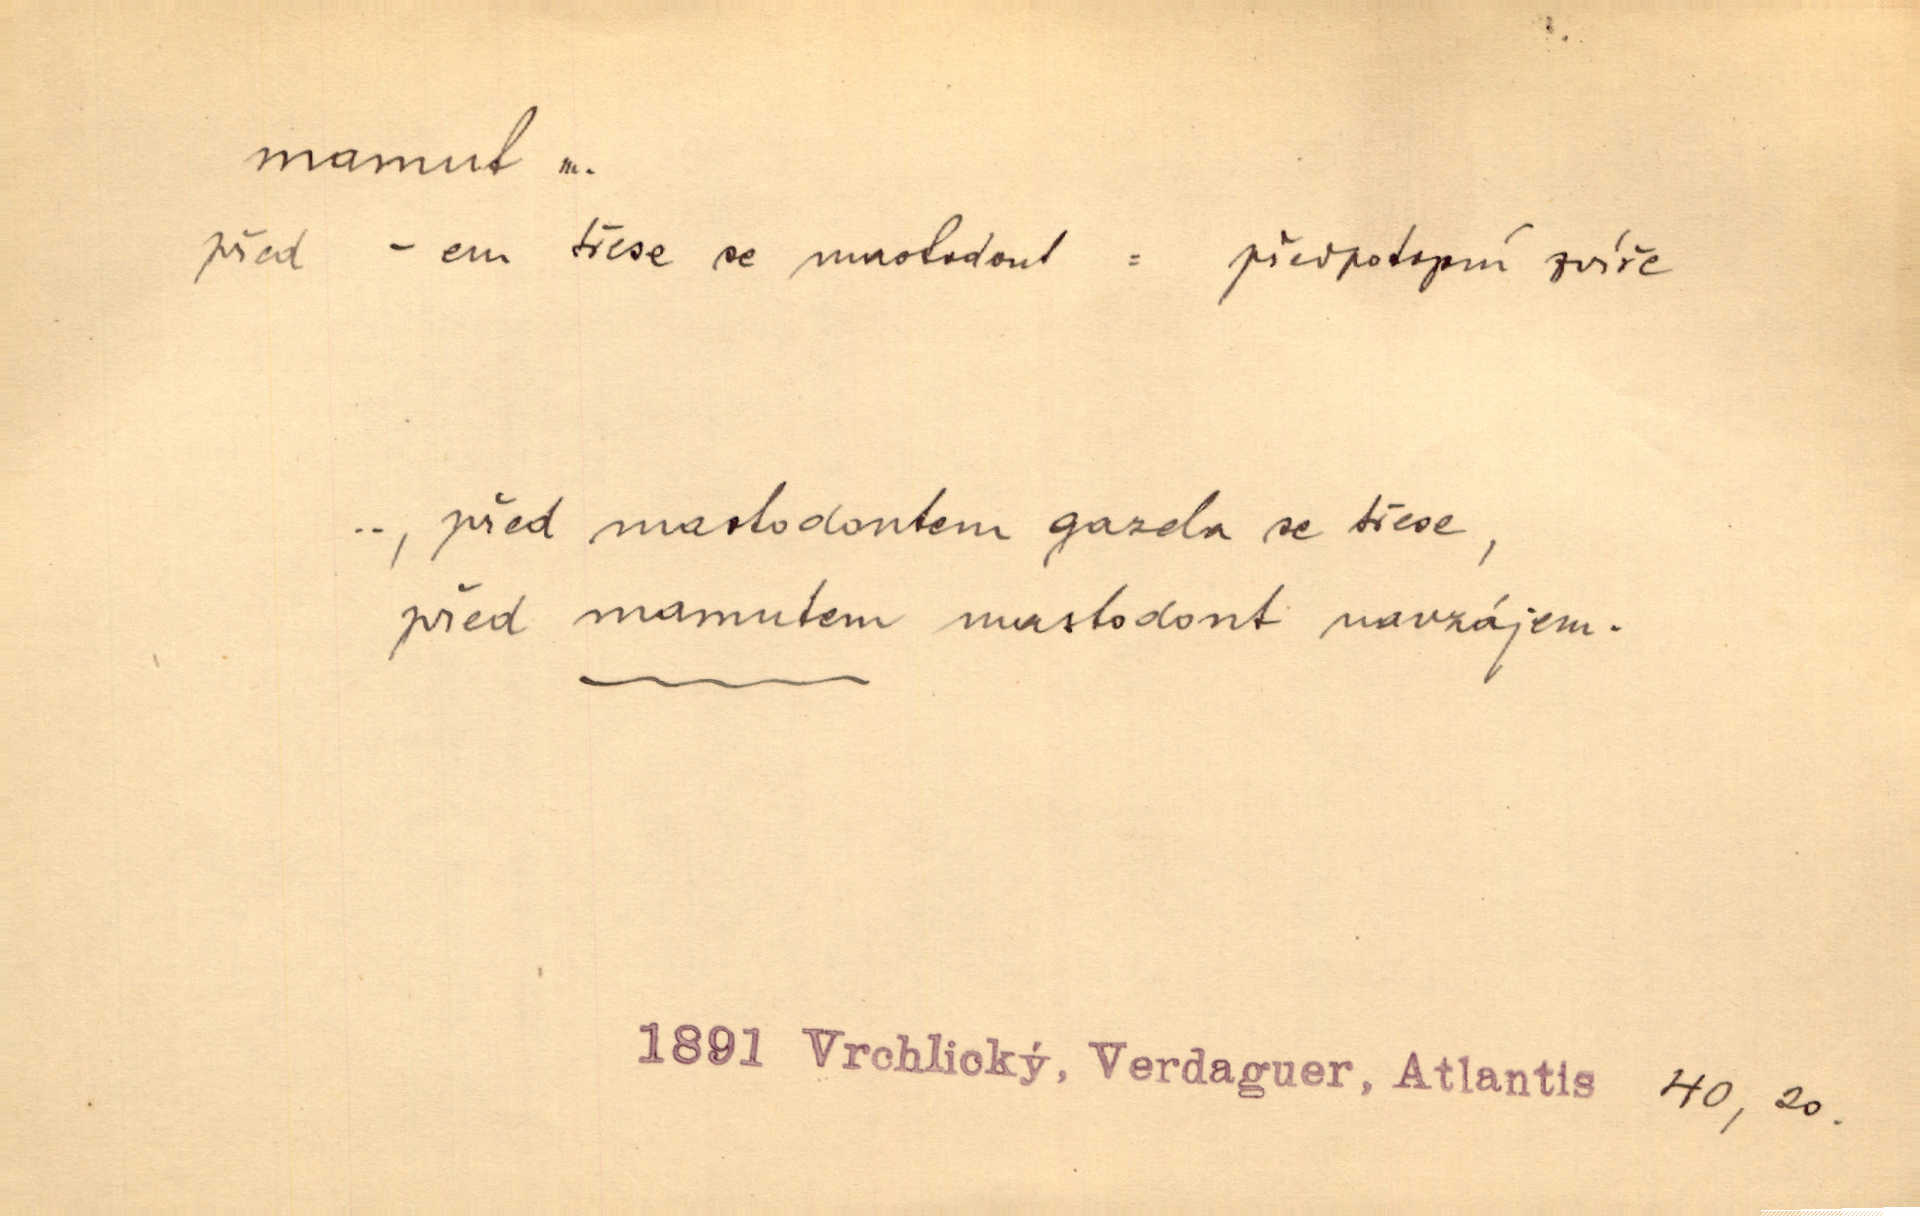 mamut m.
před - em třese se mastodont = předpotopní zvíře
.., před mastodontem gazela se třese,
před mamutem mastodont navzájem.
1891 Vrchlický, Verdaguer, Atlantis 40, 20.